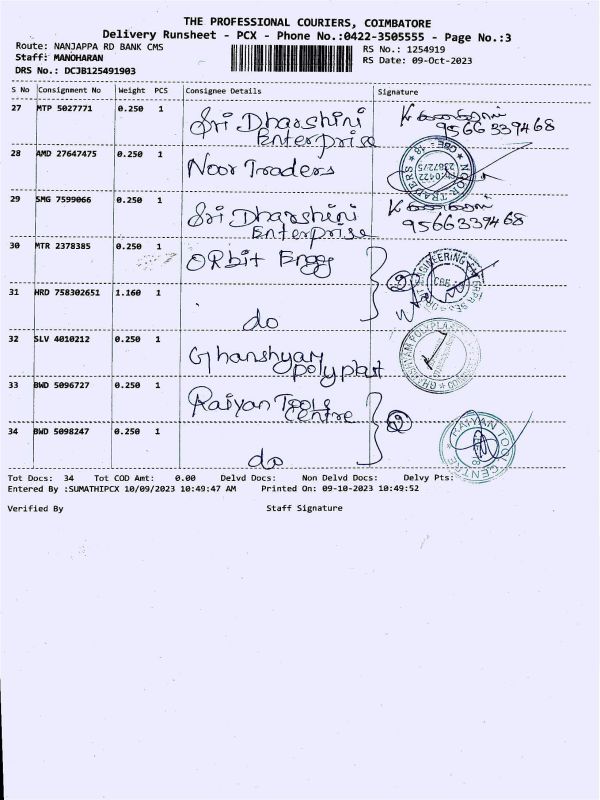 THE PROFESSIONAL COURIERS, COIMBATORE
Delivery Runsheet - PCX - Phone No.:0422-3505555 - Page No.:3
Route: NANJAPPA RD BANK CMS
RS No.: 1254919
Staff: MANOHARAN
RS Date: 09-Oct-2023
DRS No.: DCJB125491903
S No Consignment No Weight PCS Consignee Details Signature
27 MTP 5027771 0.250 1 Sri Dharshini
Enterprise
9566339468
28 AMD 27647475 0.250 1 Noor Traders
NOOR TRADERS CBE-18
29 SMG 7599066 0.250 1 Sri Dharshini
Enterprise
9566339468
30 MTR 2378385 0.250 1 ORbit Engg
2
31 HRD 758302651 1.160 1
do
32 SLV 4010212 0.250 1 Ghanshyam
polyplast
33 BWD 5096727 0.250 1 Raiyan Tools
Centre
2
34 BWD 5098247 0.250 1
do
RAIYAN TOOL CENTRE
Tot Docs: 34 Tot COD Amt: 0.00 Delvd Docs: Non Delvd Docs: Delvy Pts:
Entered By :SUMATHIPCX 10/09/2023 10:49:47 AM Printed On: 09-10-2023 10:49:52
Verified By Staff Signature